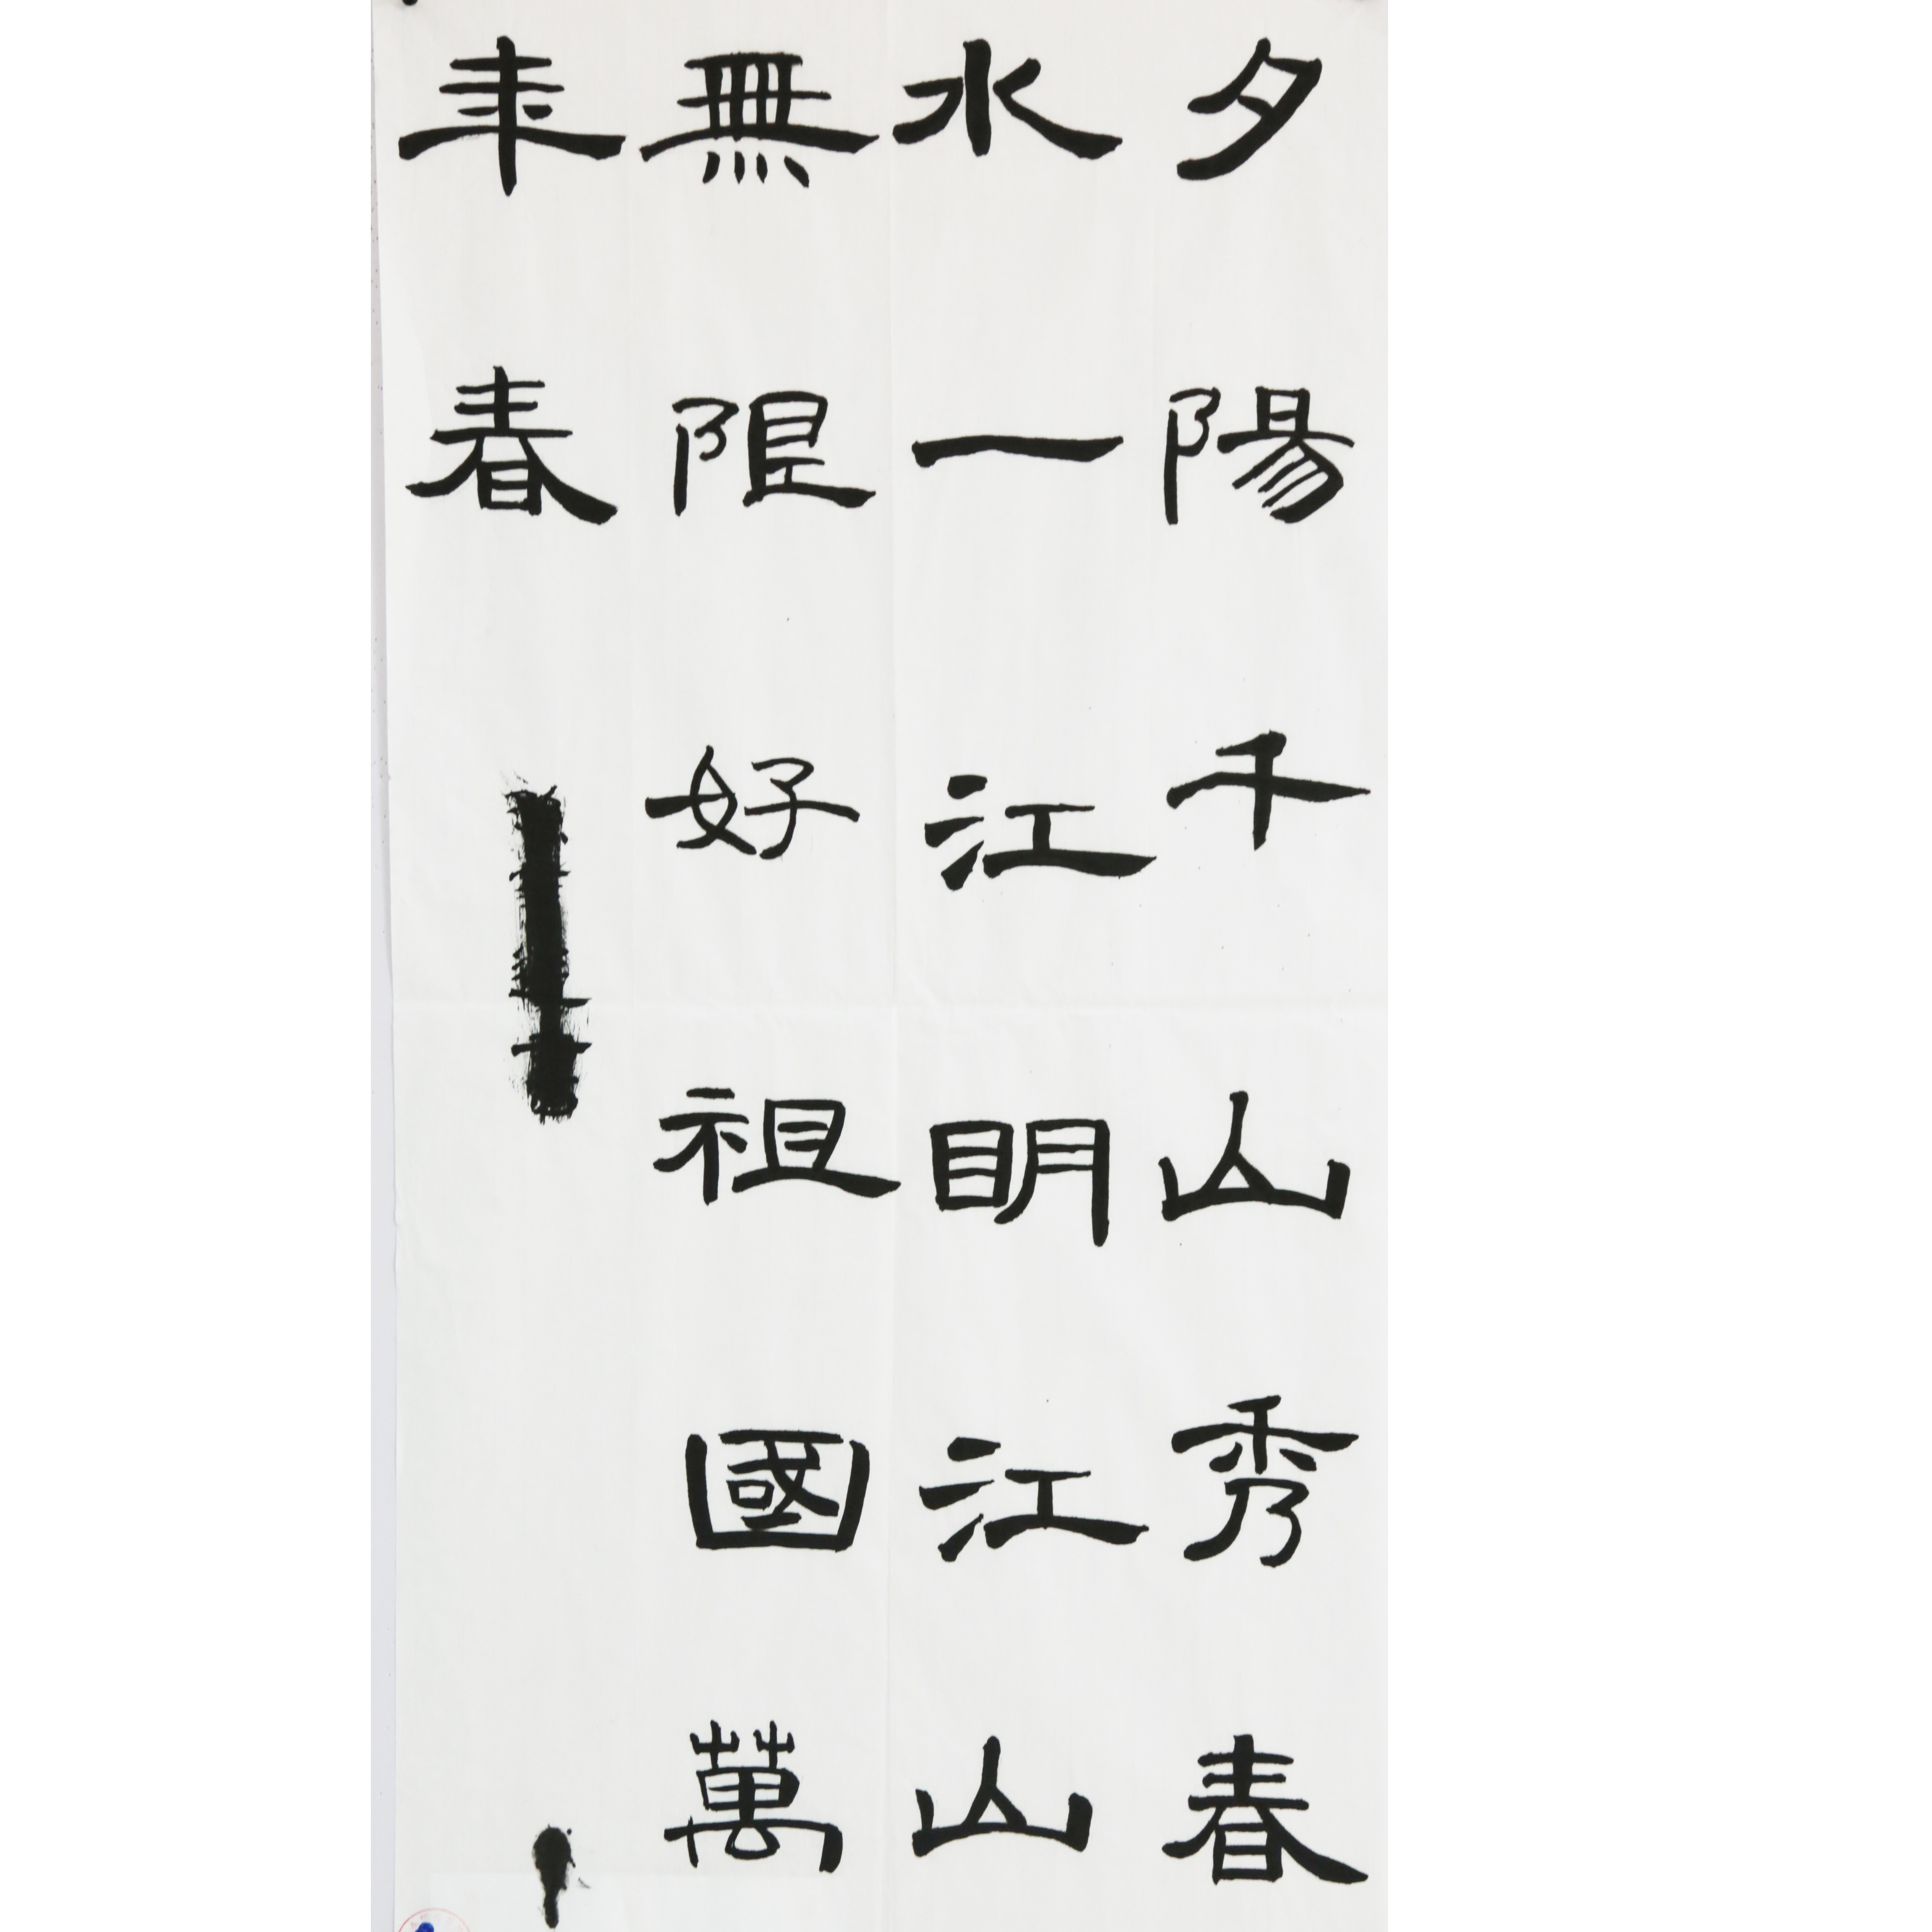 夕陽千山秀春
水一江明江山
無限好祖國萬
年春